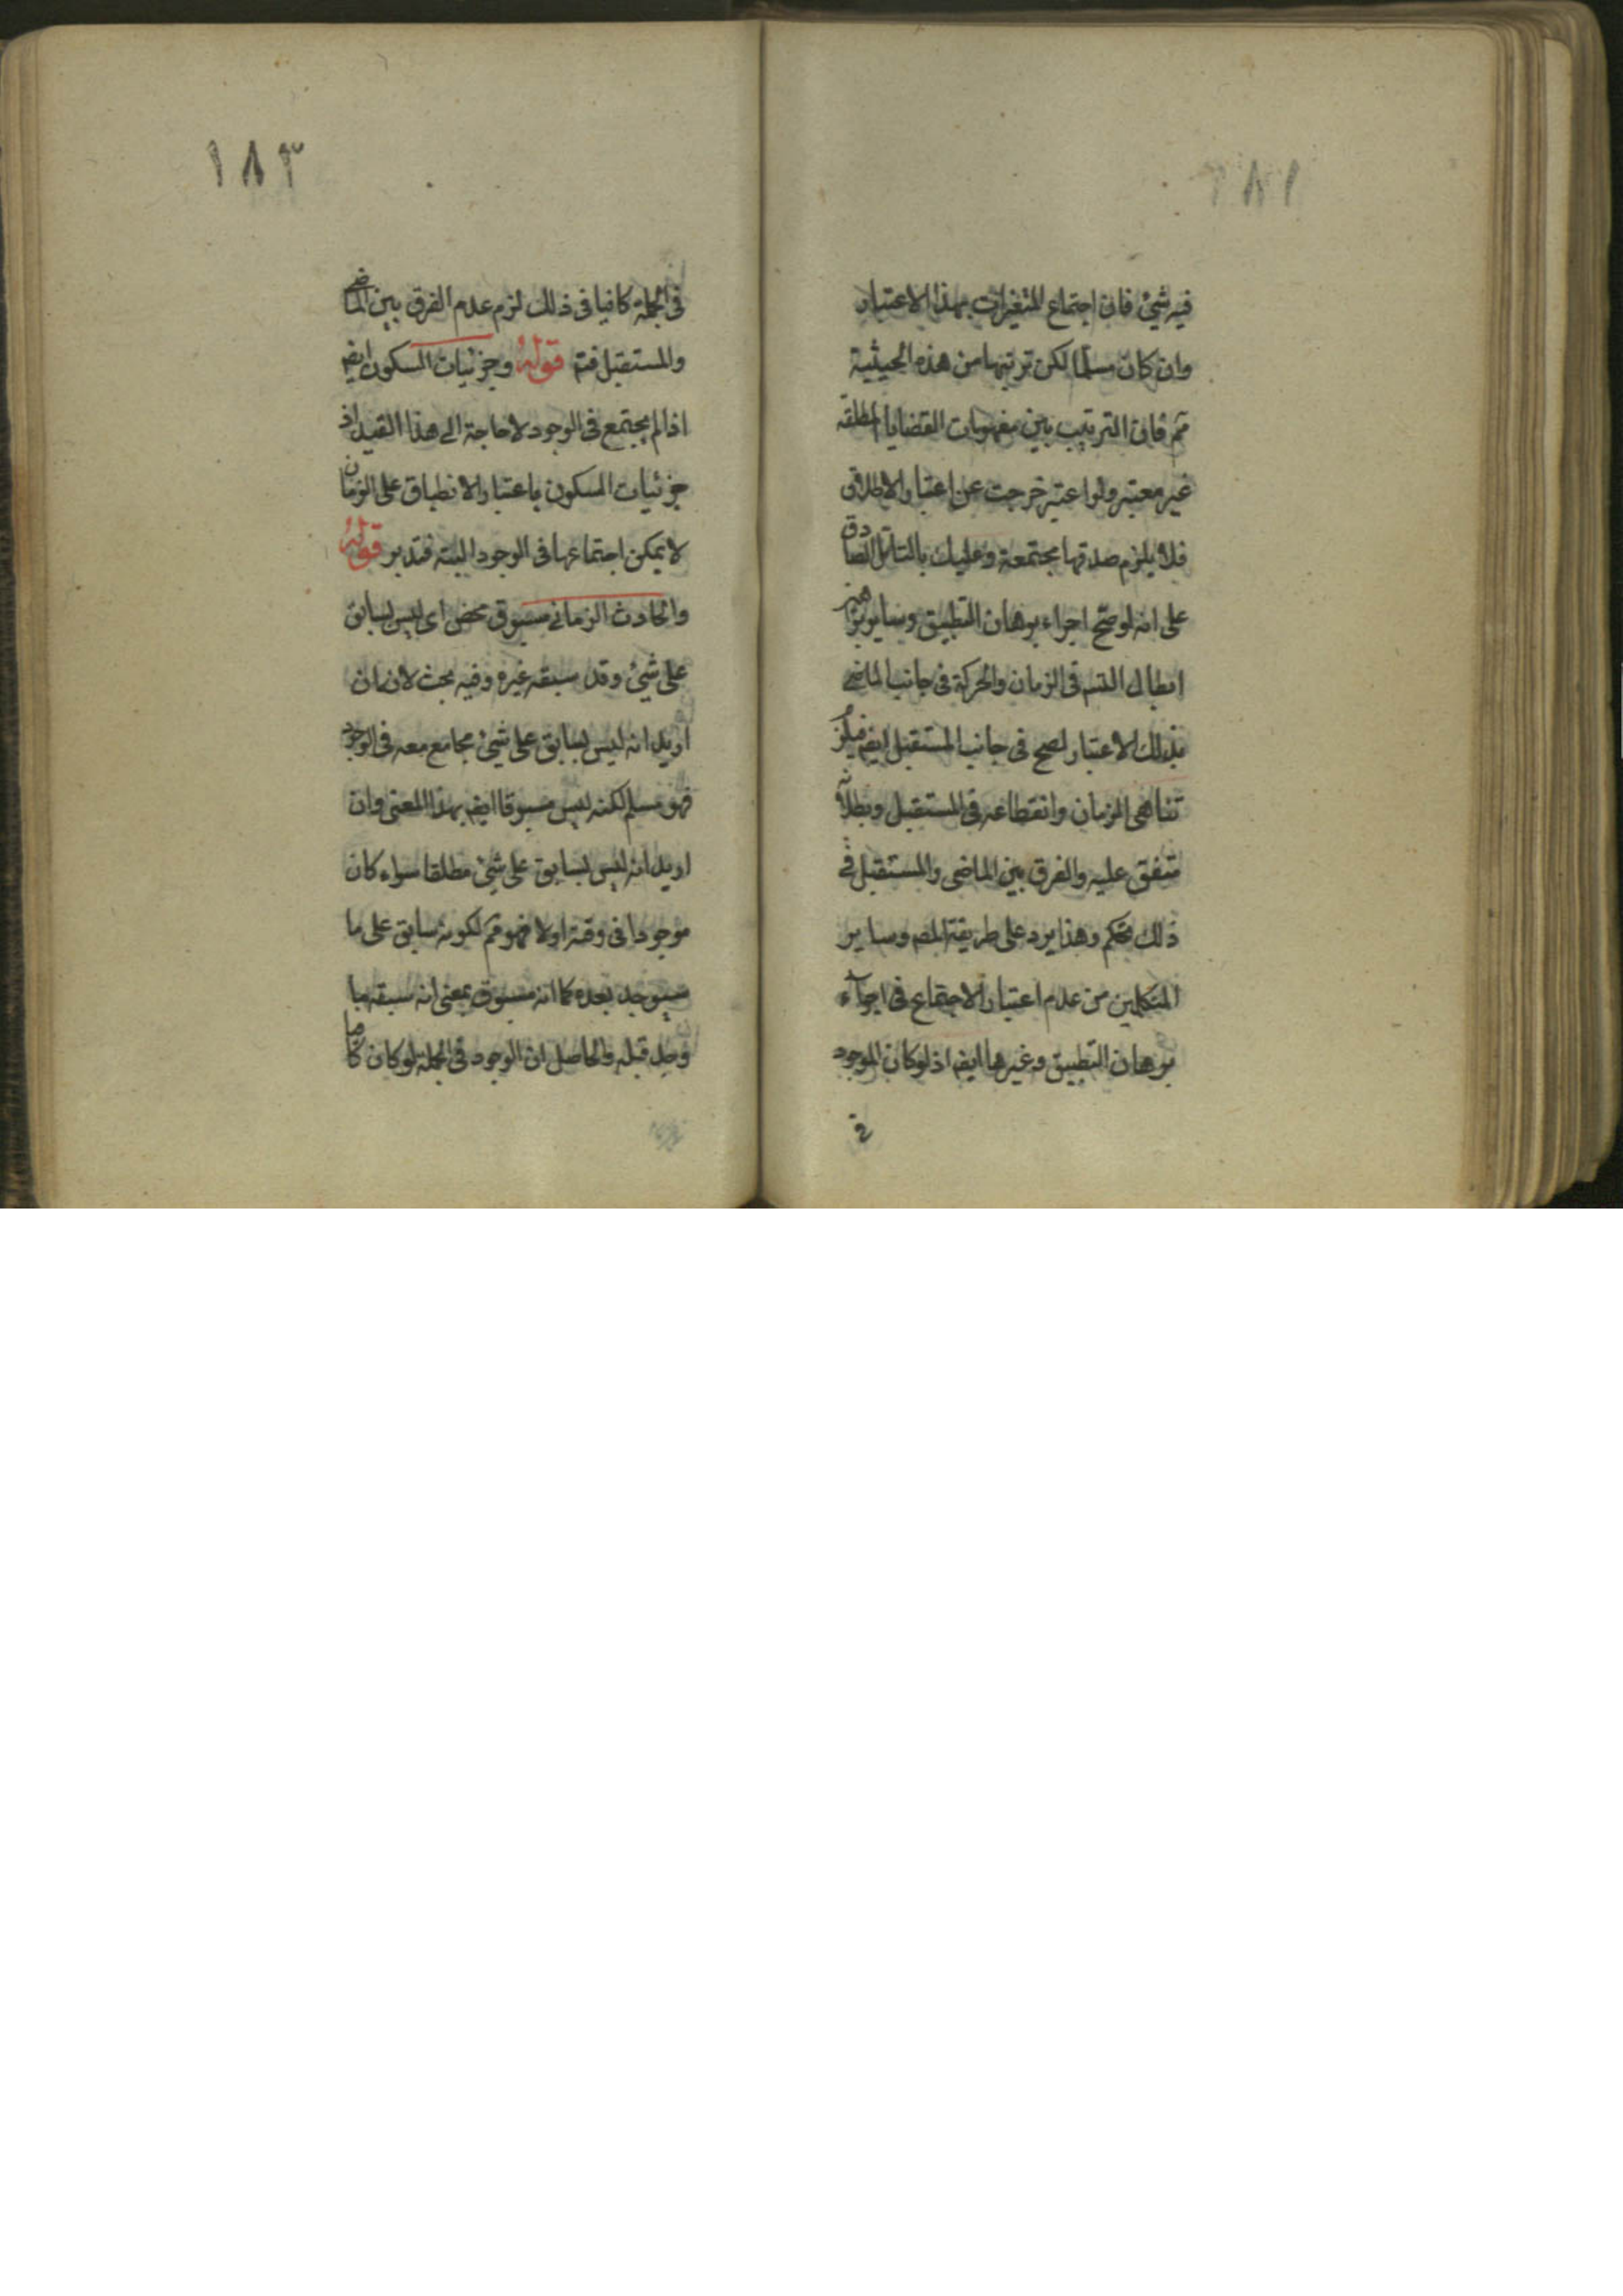 فيه شئ فان اجتماع المتغيرات بهذا الاعتبار
وان كان مسلما لكن ترتبها من هذه الحيثية
مم فان الترتيب بين مفهومات القضايا المطلقه
غير معتبر ولو اعتبر خرجت عن اعتبار الاطلاق
فلا يلزم صدقها مجتمعة وعليك بالتامل الصادق
على انه لو صح اجراء برهان التطبيق وساير براهين
ابطال التس فى الزمان والحركة فى جانب الماضى
بذلك الاعتبار لصح فى جانب المستقبل ايض فيلزم
تناهى الزمان وانقطاعه فى المستقبل وبطلانه
متفق عليه والفرق بين الماضى والمستقبل فى
ذلك تحكم وهذا يرد على طريقة المص وساير
المتكلمين من عدم اعتبار الاجتماع فى اجراء
برهان التطبيق وغيرها ايض اذ لو كان الموجود
فى
١٨٣
فى الجملة كافيا فى ذلك لزم عدم الفرق بين الماضى
والمستقبل فتم قوله وجزئيات السكون ايض
اذا لم يجتمع فى الوجود لا حاجة الى هذا القيد اذ
جزئيات السكون باعتبار الانطباق على الزمان
لا يمكن اجتماعها فى الوجود البتة فتدبر قوله
والحادث الزمانى مسبوق محض اى ليس بسابق
على شئ وقد سبقه غيره وفيه بحث لانه ان
اريد انه ليس بسابق على شئ مجامع معه فى الوجود
فهو مسلم لكنه ليس مسبوقا ايض بهذا المعنى وان
اريد انه ليس بسابق على شئ مطلقا سواء كان
موجودا فى وقته اولا فهو مم لكونه سابق على ما
سيوجد بعده كما انه مسبوق بمعنى انه سبقه ما
وجد قبله والحاصل ان الوجود فى الجملة لو كان كا